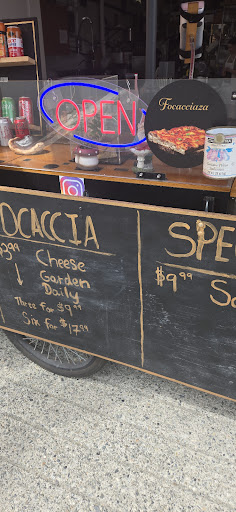 OPEN
Focacciaza
OCACCIA
$3.99
Cheese
Garden
Daily
Three for $9.99
Six for $17.99
SPE
$9.99
S